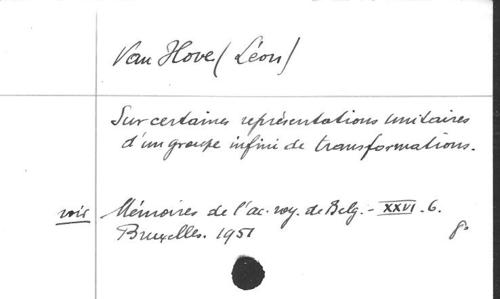 Van Hove (Léon)
Sur certaines représentations unitaires
d'un groupe infini de transformations.
voir Mémoires de l'ac. roy. de Belg. - XXVI. 6.
Bruxelles. 1951 8°